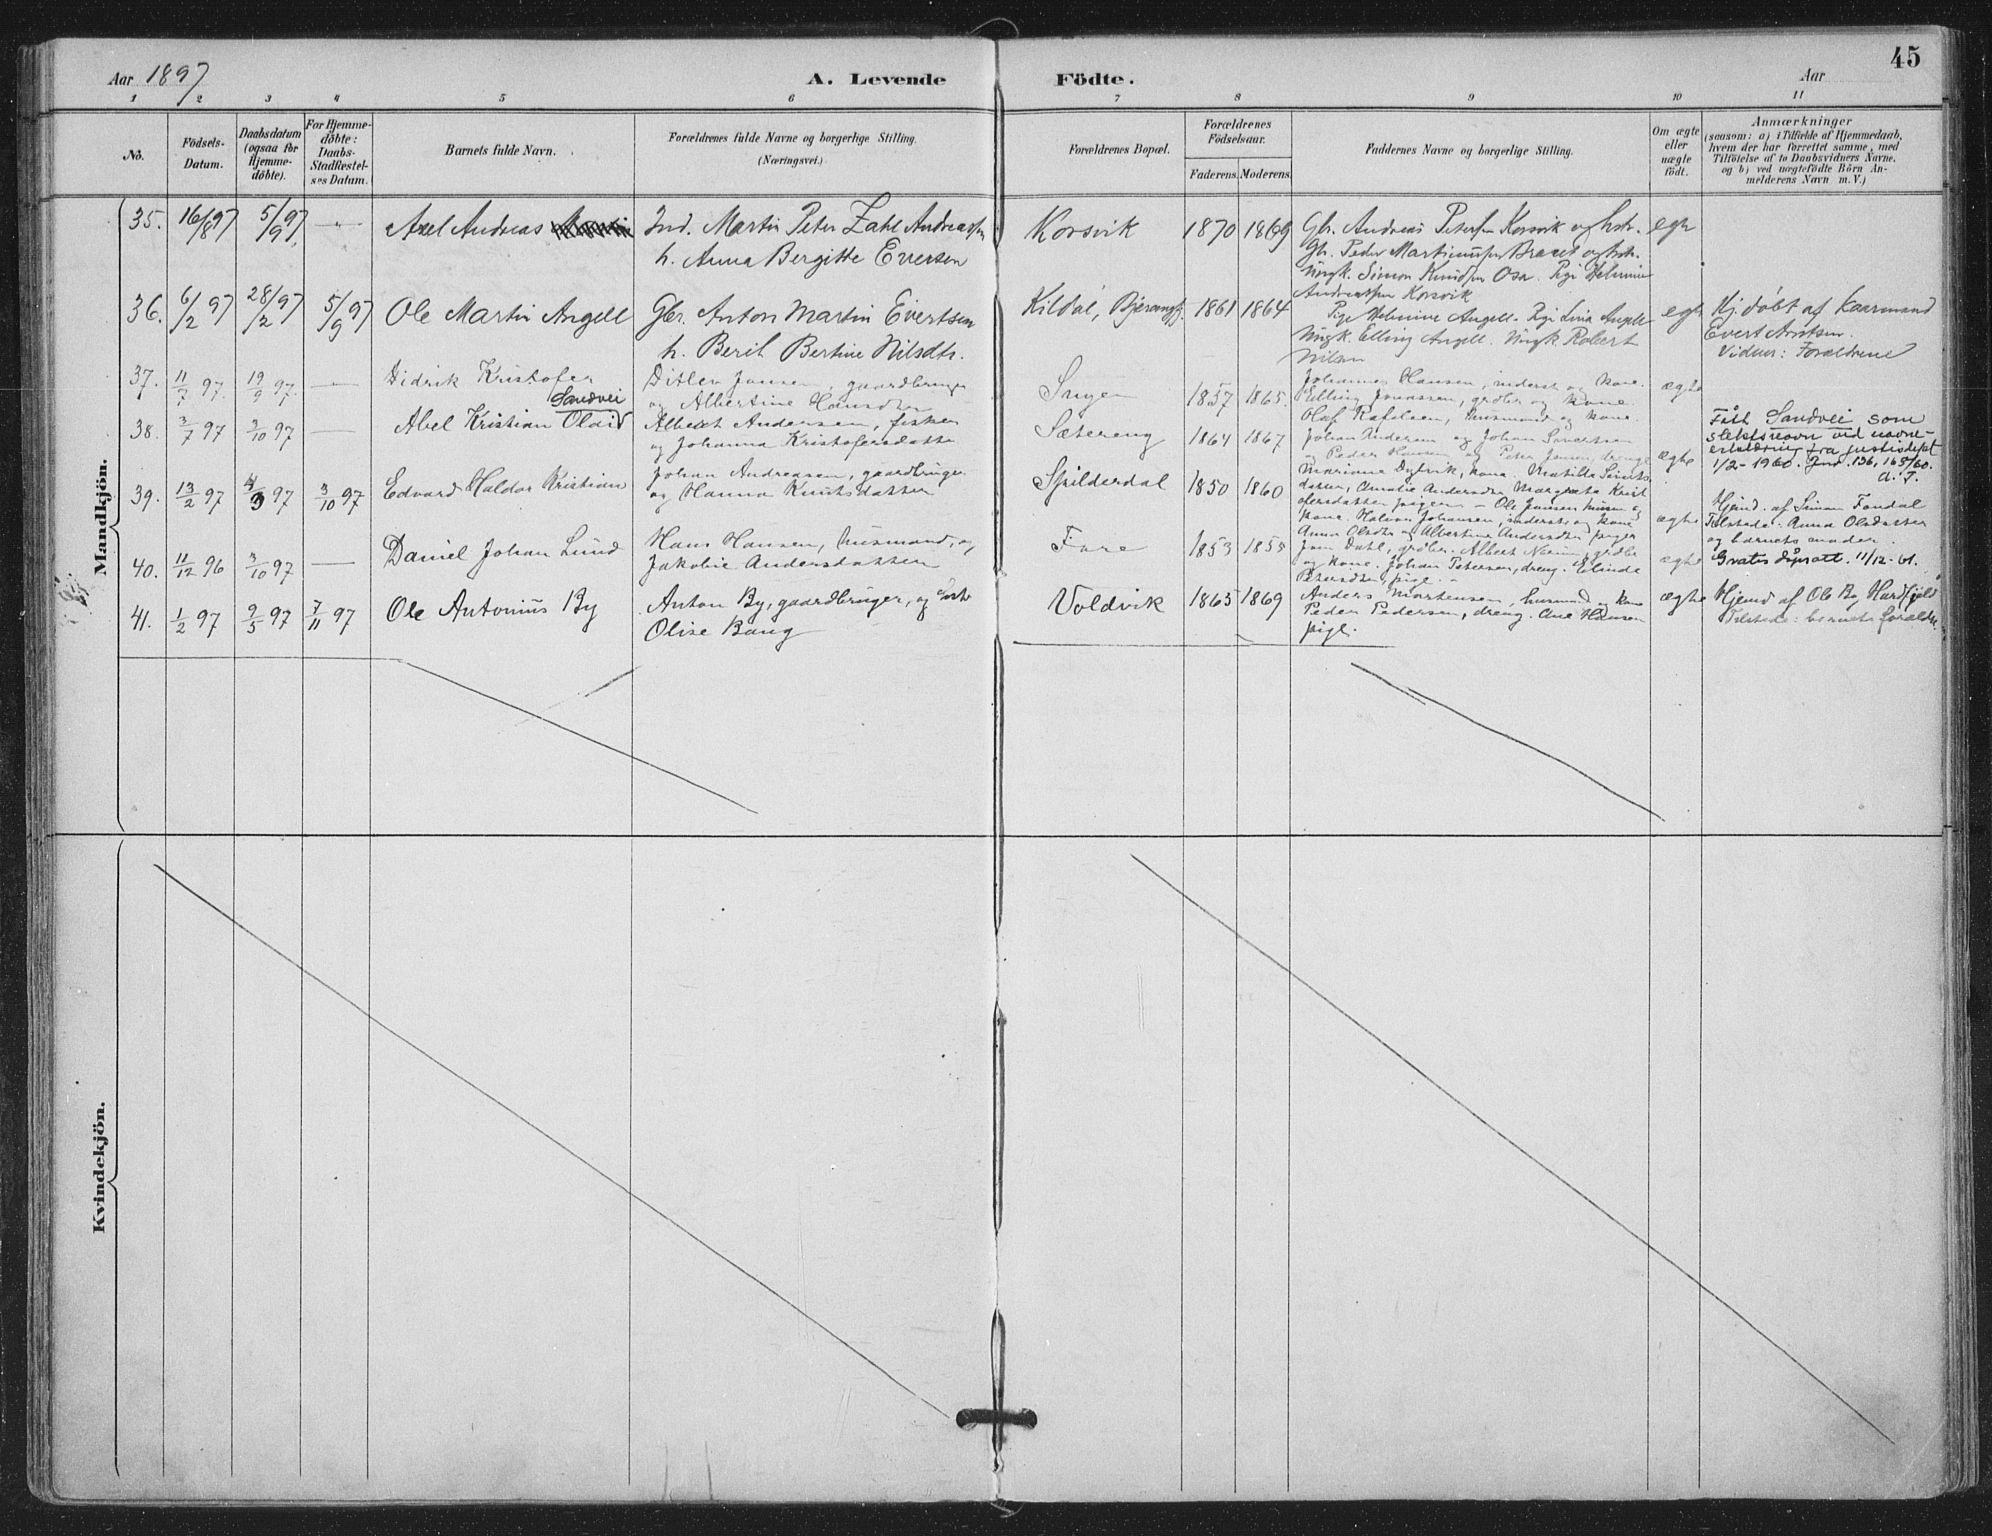 45
Aar 1897 A. Levende Födte. Aar
1 2 3 4 5 6 7 8 9 10 11
No.
Födsels-
Datum.
Daabsdatum
(ogsaa for
Hjemme-
döbte).
For Hjemme-
döbte:
Daabs-
Stadfæstel-
ses Datum.
Barnets fulde Navn.
Forældrenes fulde Navne og borgerlige Stilling.
(Næringsvei.)
Forældrenes Bopæl.
Forældrenes
Födselsaar.
Faderens. Moderens.
Faddernes Navne og borgerlige Stilling.
Om ægte
eller
uægte
födt.
Anmærkninger
(saasom: a) i Tilfælde af Hjemmedaab,
hvem der har forrettet samme, med
Tilföielse af to Daabsvidners Navne,
og b) ved uægtefödte Börn An-
melderens Navn m. V.)
Mandkjön.
35. 16/8 97 5/9 97 — Axel Andreas
Ind. Martin Peter Zahl Andreassen
h. Anna Bergitte Evertsen
Korsvik 1870 1869
Gbr. Andreas Petersen Korsvik og hstr.
Gbr. Peder Martinussen Braset og hstr.
Ungk. Simon Knudsen Osa. Pige Helmine
Andreassen Korsvik
egte
36. 6/2 97 28/2 97 5/9 97 Ole Martin Angell
Gbr. Anton Martin Evertsen
h. Berit Bertine Nilsdtr.
Kildal, Bjerangfj. 1861 1864
Pige Helmine Angell. Pige Lina Angell
Ungk. Elling Angell. Ungk. Robert
Nilsen
egte
Hj.døbt af Kaarmand
Evert Arntsen.
Vidner: Forældrene
37. 11/7 97. 19/9 97. — Didrik Kristofer
Ditlev Jansen, gaardbruger
og Albertine Hansdtr
1857 1865.
Johannes Hansen, inderst og kone.
Elling Jonassen, grdbr og kone.
ægte
38. 3/7 97 3/10 97 — Abel Kristian Olaid Sandvei
Albert Andersen, fisker
og Johanna Kristofersdatter
Sætereng 1864 1867
Olaf Rafelsen, husmand og kone
Johan Andersen og Johan Sivertsen
og Peder Hansen og Peter Jensen, drenge
ægte
Fått Sandvei som
slektsnavn ved navne-
erklæring fra Justisdept
1/2-1960. Jnr. 136, 165/60.
39. 13/2 97 4/3 97 3/10 97 Edvard Haldor Kristian
Johan Andreasen, gaardbruger
og Hanna Knutsdatter
Spilderdal 1850 1860
Marianne Dybvik, kone. Matilde Siverts-
datter, Amalie Andersdtr Margreta Krist
ofersdatter piger – Ole Jansen husm og
kone. Halvor Johansen, inderst og kone
ægte
Hjemd. af Simon Fondal
Tilstede: Anna Olsdatter
og barnets moder.
40. 11/12 96 3/10 97 — Daniel Johan Lund
Hans Hansen, husmand, og
Jakobie Andersdatter
Fore 1853 1855
Anna Olsdtr og Albertine Andersdtr piger
Jon Dahl, grdbr. Albert grdbr
og kone. Johan Petersen, dreng. Elinde
Petersdtr, pige. –
ægte
Gratis dåpsatt. 11/12-61.
41. 1/2 97 9/5 97 7/11 97 Ole Antonius By
Anton By, gaardbruger, og
Olise Bang
Voldvik 1865 1869
Anders Mortensen, husmand og kone
Peder Pedersen, dreng. Ane Hansen
pige.
ægte
Hjemd af Ole By Hardfjeld
Tilstede: barnets forældre.
Kvindekjön.